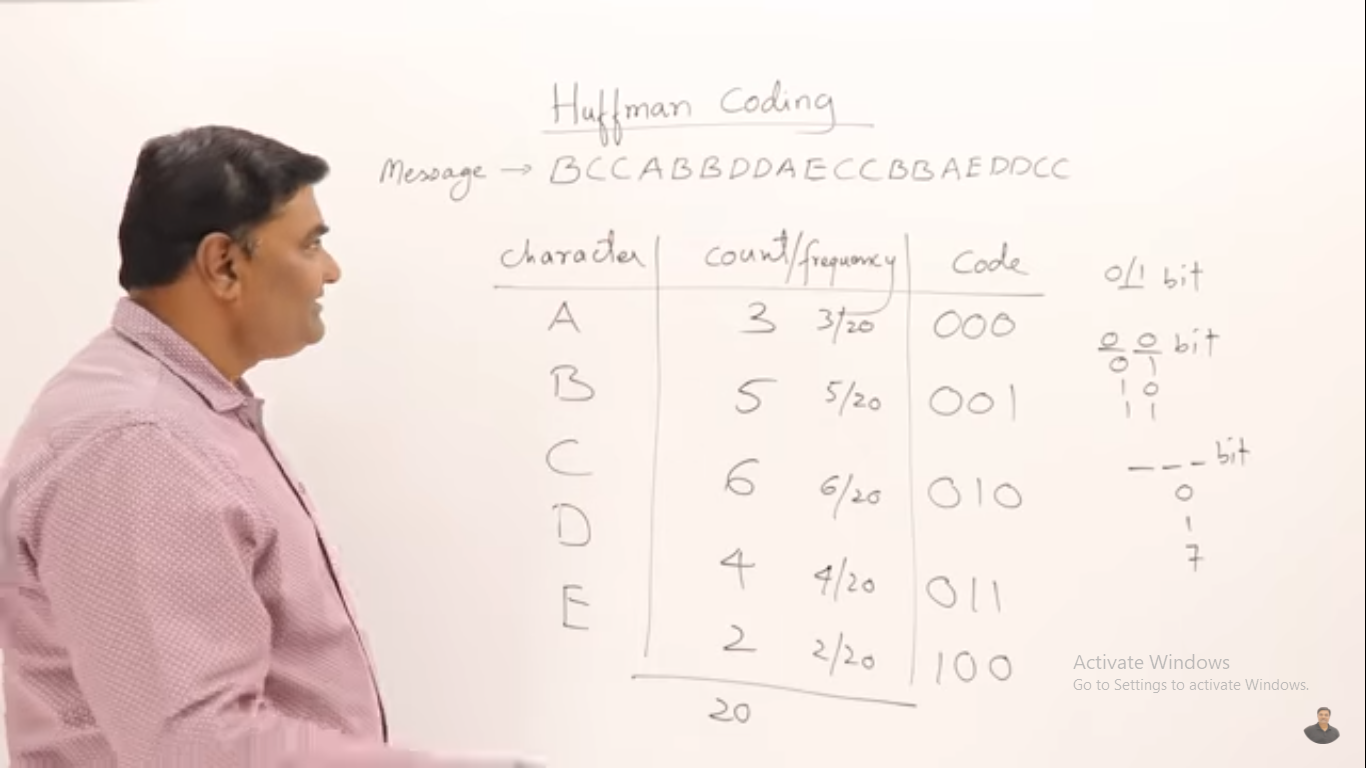 Huffman Coding
Message → BCCABBDDAECCBBAEDDCC
character count/frequency Code
A 3 3/20 000
B 5 5/20 001
C 6 6/20 010
D 4 4/20 011
E 2 2/20 100
20
0/1 bit
0 0 bit
0 1
1 0
1 1
_ _ _ bit
0
1
7
Activate Windows
Go to Settings to activate Windows.